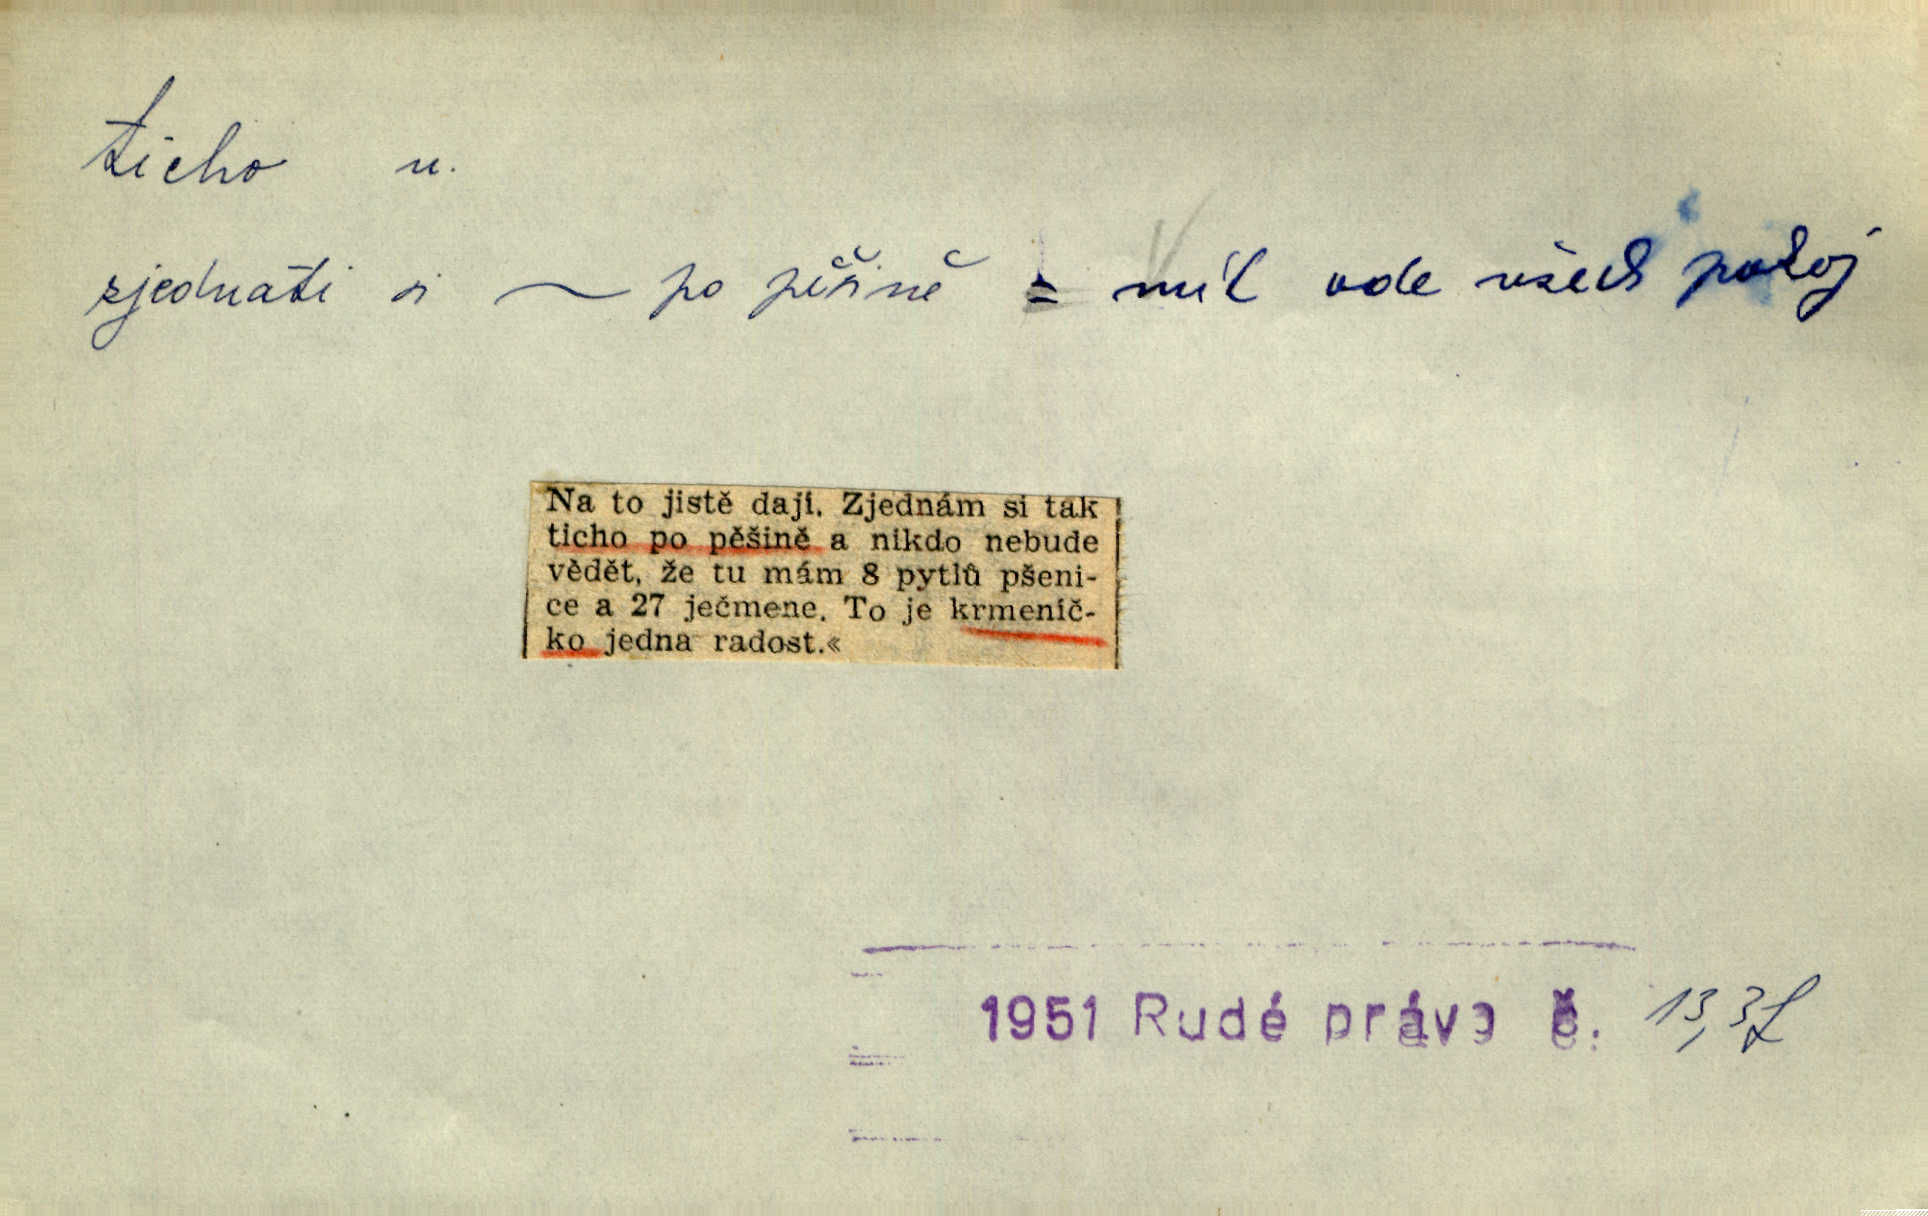 ticho n.
zjednati si ~ po pěšině = mít ode všech pokoj
Na to jistě dají. Zjednám si tak
ticho po pěšině a nikdo nebude
vědět, že tu mám 8 pytlů pšeni-
ce a 27 ječmene. To je krmenič-
ko jedna radost.«
1951 Rudé právo č. 13, 3